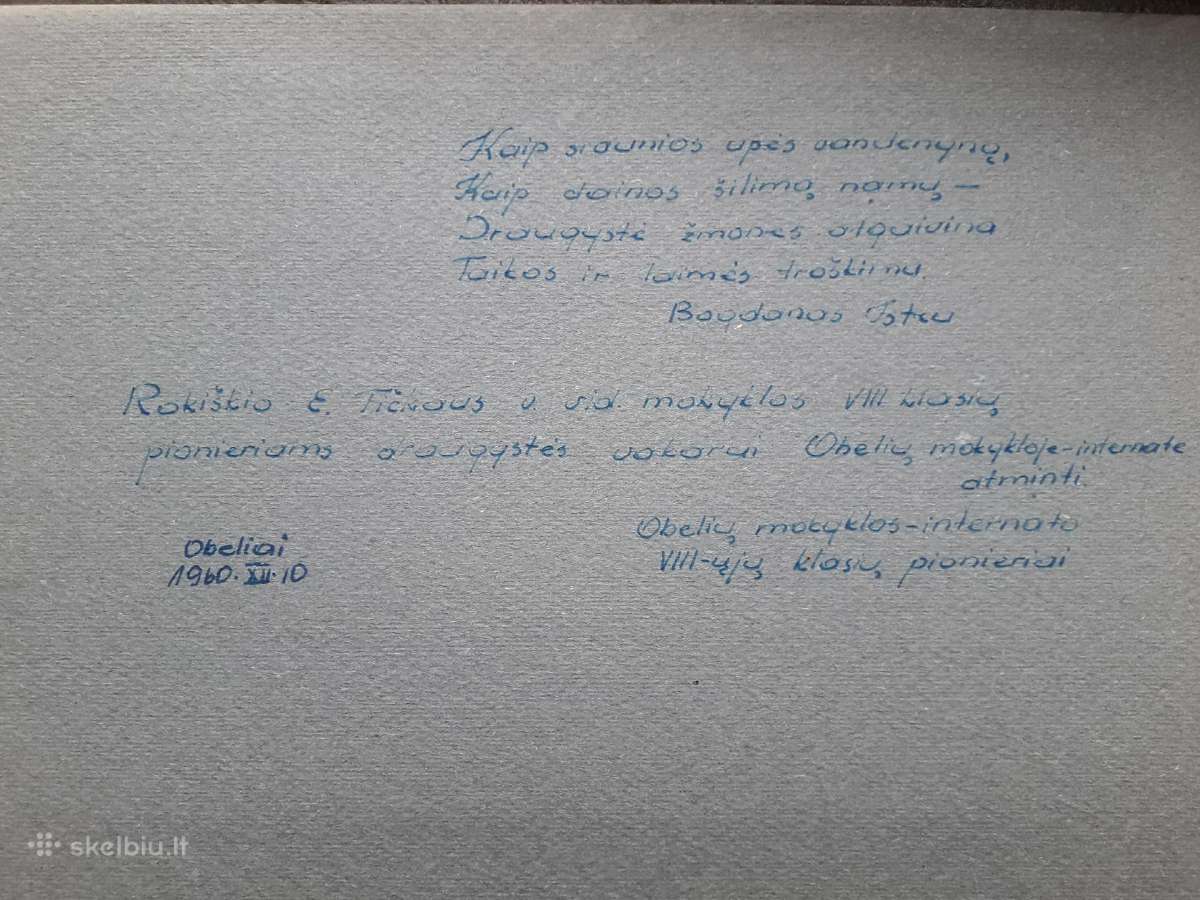 Kaip sraunios upės vandenynų,
Kaip dainos šilimą namų —
Draugystė žmones atgaivina
Taikos ir laimės troškimu.
Bogdanas
Rokiškio E. Tičkaus v. vid. mokyklos VIII klasių
pionieriams draugystės vakarui Obelių mokykloje-internate
atminti
Obelių mokyklos-internato
VIII-ųjų klasių pionieriai
Obeliai
1960.XII.10
skelbiu.lt